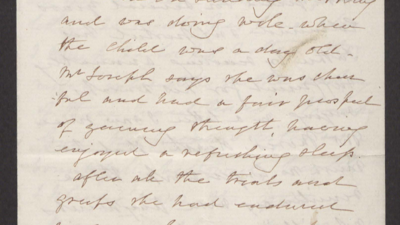 and was doing well when
the child was a day old.
Mr Joseph says she was cheer
ful and had a fair prospect
of gaining strength, having
enjoyed a refreshing sleep
after all the trials and
griefs she had endured